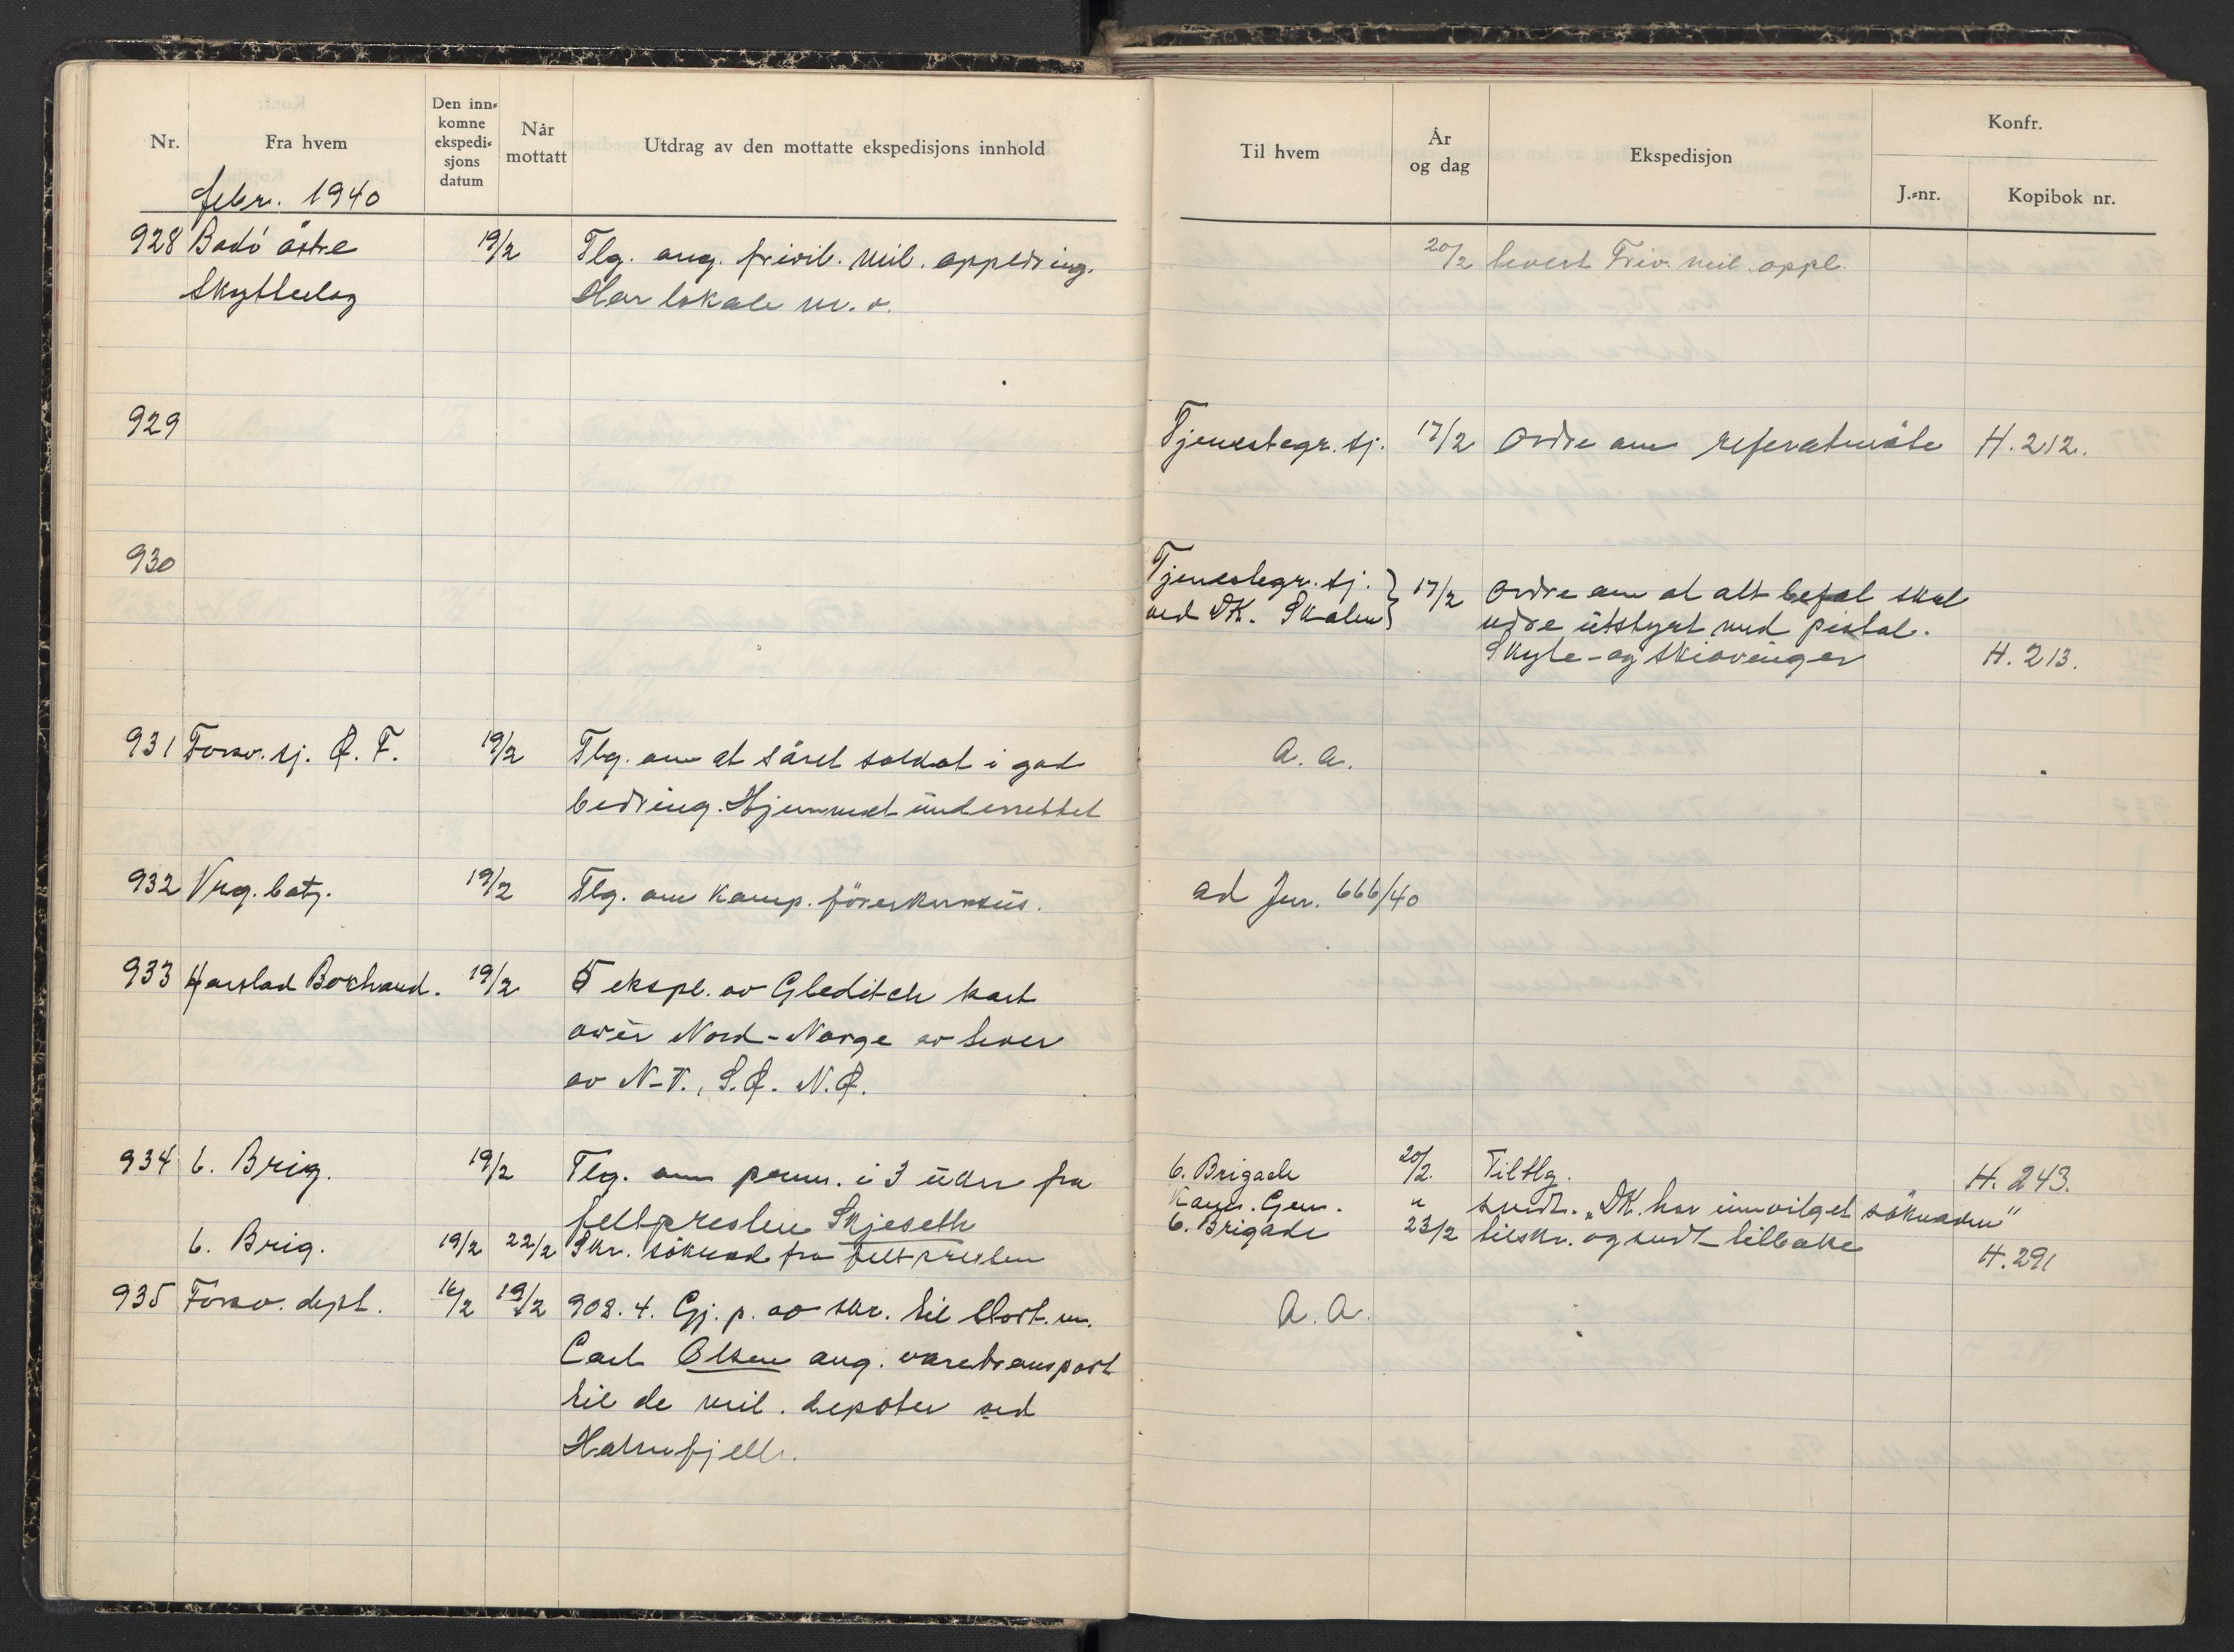 Nr.
Fra hvem
Den inn-
komne
ekspedi-
sjons
datum
Når
mottatt
Utdrag av den mottatte ekspedisjons innhold
febr. 1940
928 Bodö östre 19/2 Tlg. ang. frivil. mil. oppldring.
Skytterlag Har lokale m. v.
929
930
931 Forsv. sj. Ø. F. 19/2 Tlg. om at såret soldat i god
bedring. Hjemmet underrettet
932 Vrg. batj. 19/2 Tlg. om Kamp. förerkursus.
933 Harstad Bokhand. 19/2 5 ekspl. av Gleditch kart
over Nord-Norge
av N-T., S.Ø. N.Ø.
934 6. Brig. 19/2 Tlg. om perm. i 3 uker fra
feltpresten Skjeseth
6. Brig. 19/2 22/2 Skr. söknad fra feltpresten
935 Forsv. dept. 16/2 19/2 908. 4. Gj. p. av skr. til Stort. m.
Carl Olsen ang. varetransport
til de mil. depoter ved
Hatnfjell.
Til hvem
År
og dag
Ekspedisjon
Konfr.
J.-nr.
Kopibok nr.
20/2 levert Friv. mil. oppl.
Tjenestegr. sj. 17/2 Ordre om referatmöte H. 212.
Tjenestegr. sj. } 17/2 Ordre om at alt befal skal
ved DK. Skolen være utstyrt med pistol.
Skyte- og skiövinger H. 213.
a. a.
ad Jnr. 666/40
6. Brigade 20/2. Tiltlg. H. 243.
Komm. Gen. " sendt. „DK. har innvilget söknaden"
6. Brigade 23/2 tilskr. og sendt tilbake
H. 291
a. a.